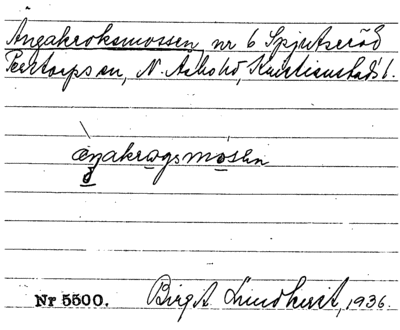 Angakroksmossen, nr 6 Spjutseröd
Perstorps sn, N. Åsbo hd, Kristianstads l.
aŋakrogsmosen
Nr 5500. Birgit Lindkvist, 1936.